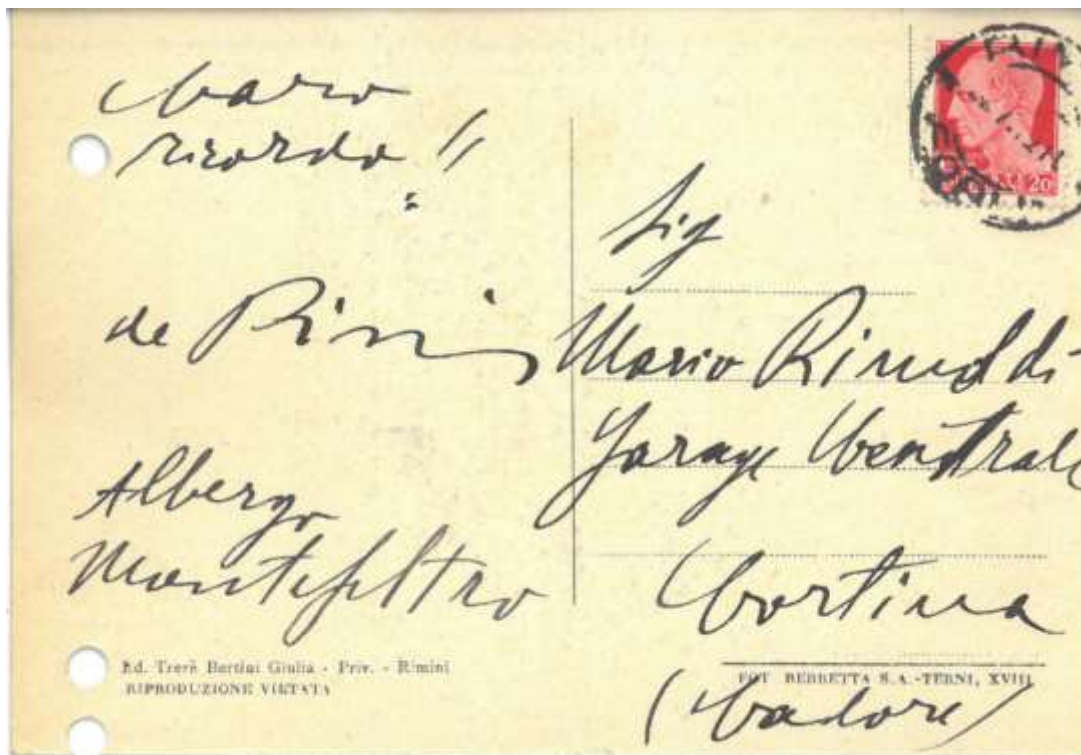 Caro
ricordo!!
de Pinis
Albergo
Montefeltro
Ed. Trerè Bertini Giulia - Priv. - Rimini
RIPRODUZIONE VIETATA
20
Sig
Mario Rinaldi
Garage Centrale
Cortina
FOT BERRETTA S.A.-TERNI, XVIII
(Cadore)